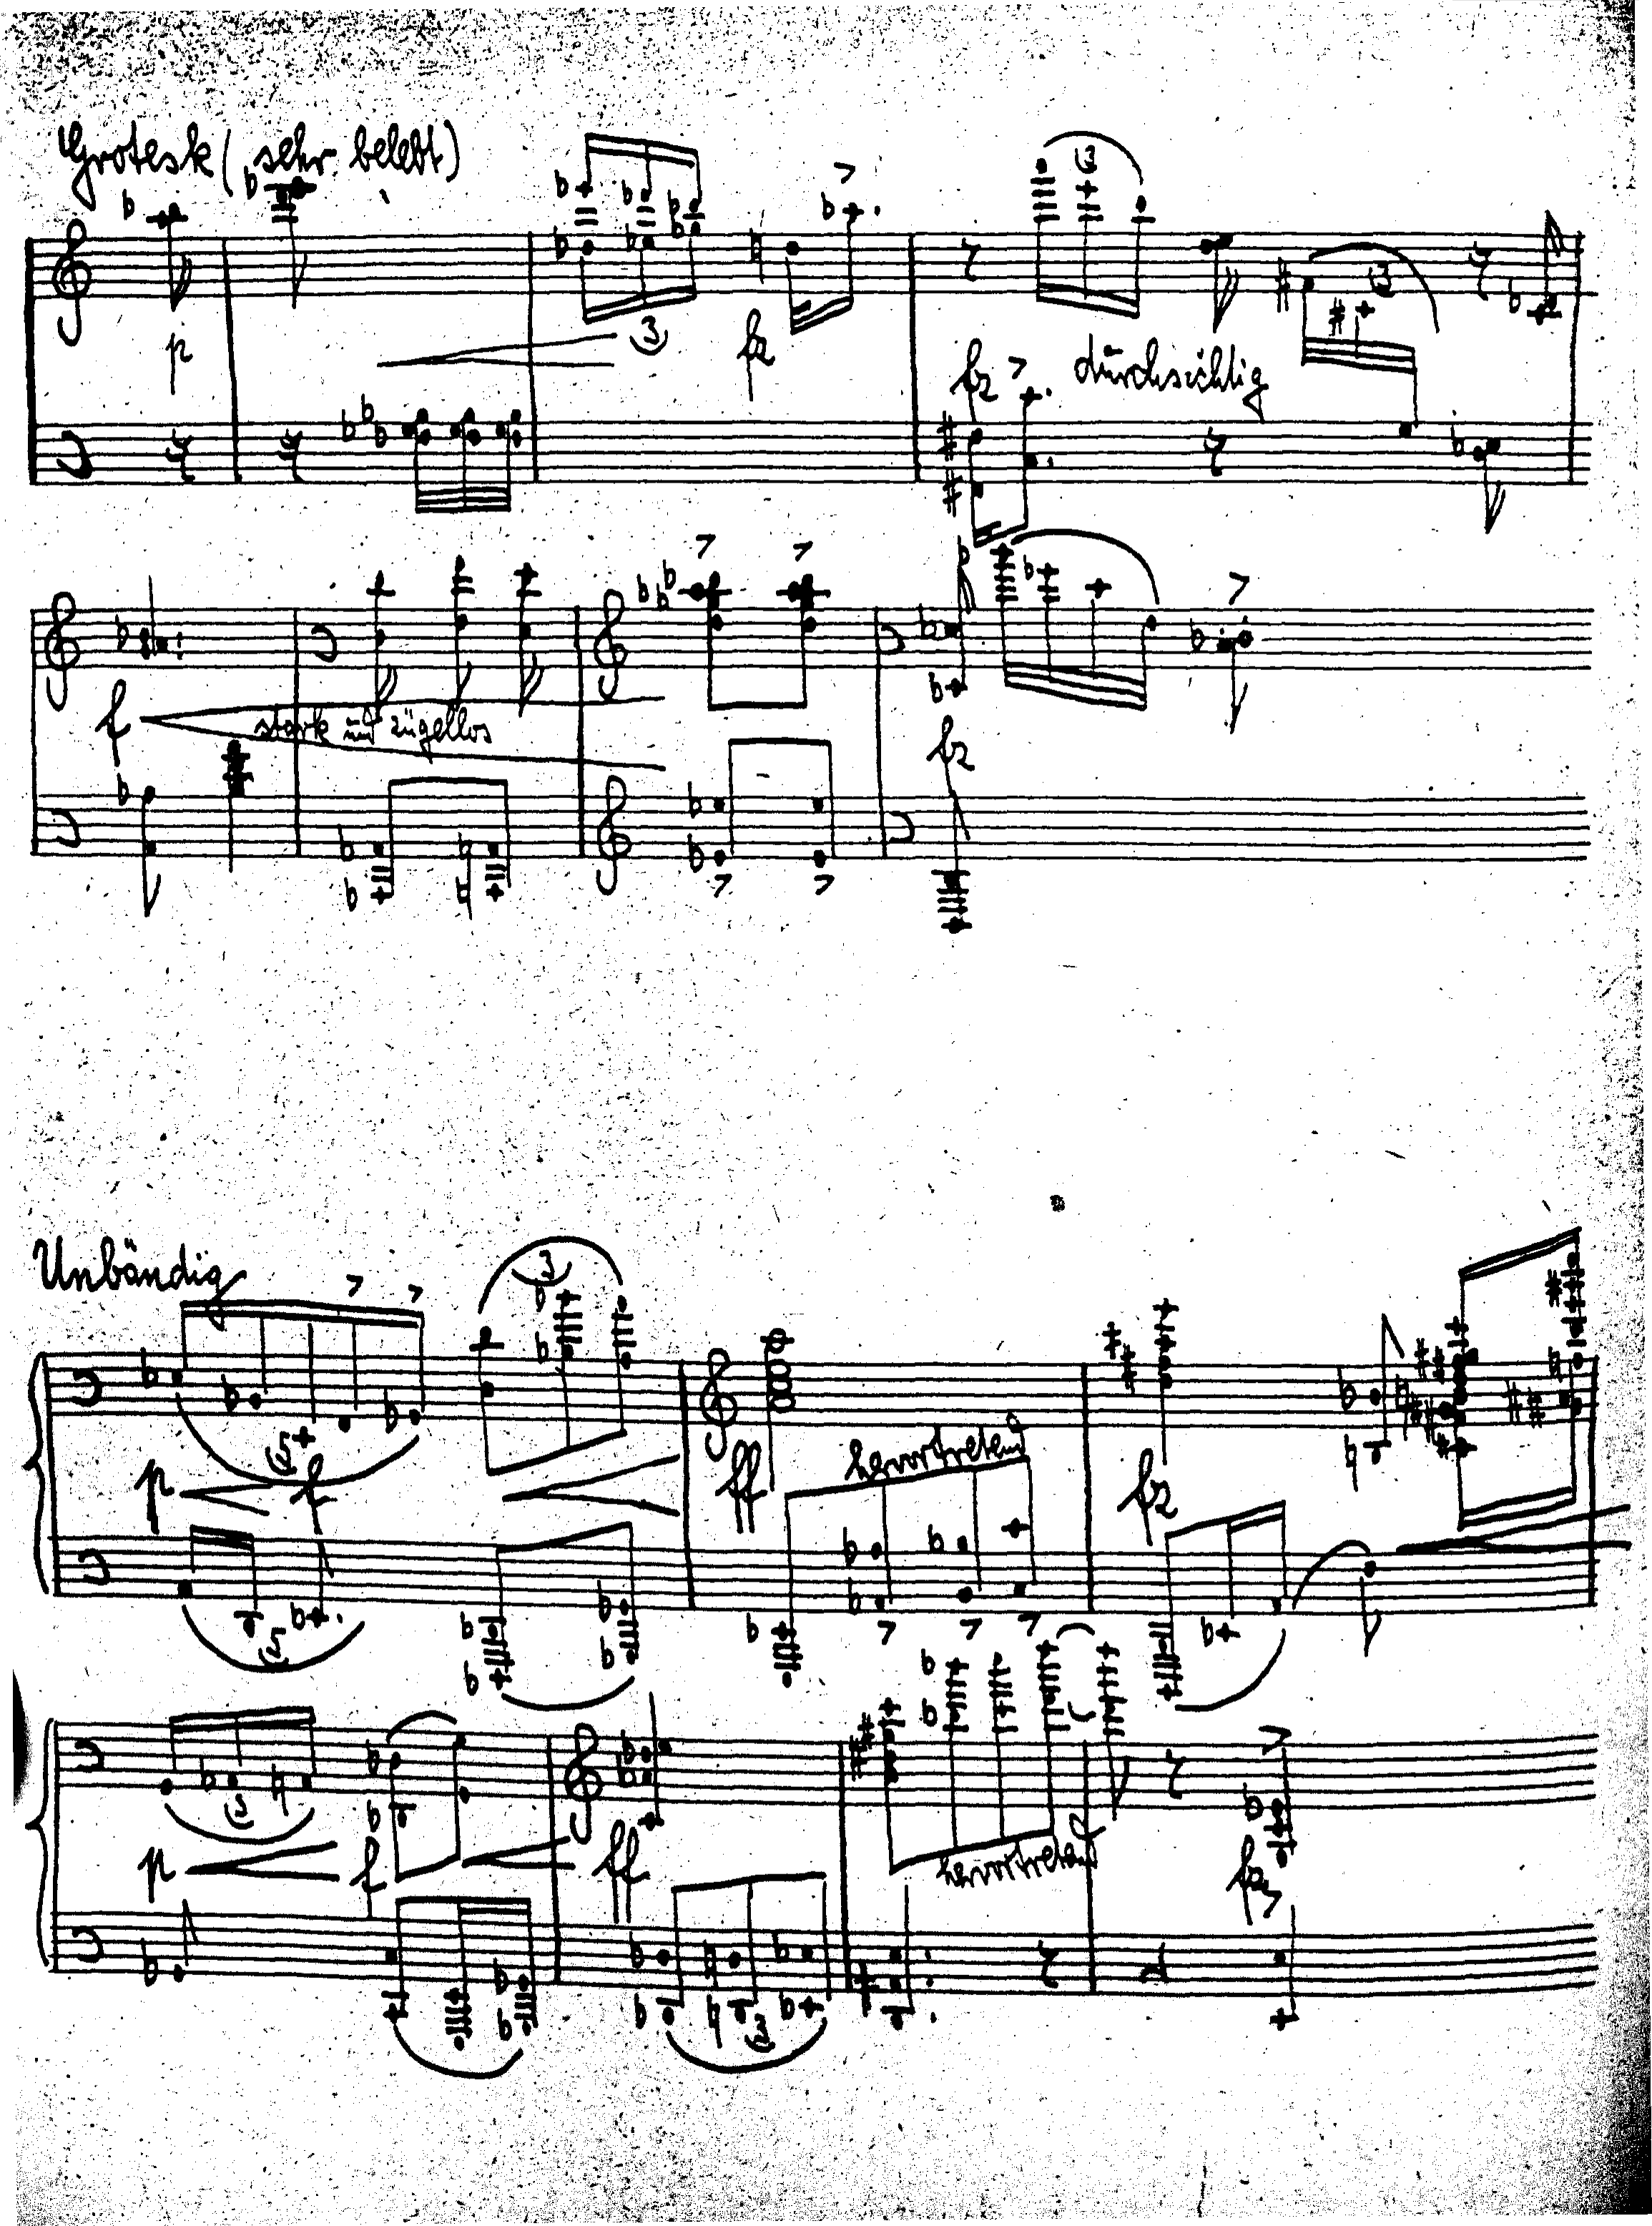 Grotesk (sehr belebt)
3
3
3
p
fz
fz
durchsichtig
f
stark und zügellos
fz
Unbändig
3
5
p
f
ff
hervortretend
fz
5
3
p
f
ff
hervortretend
fz
3